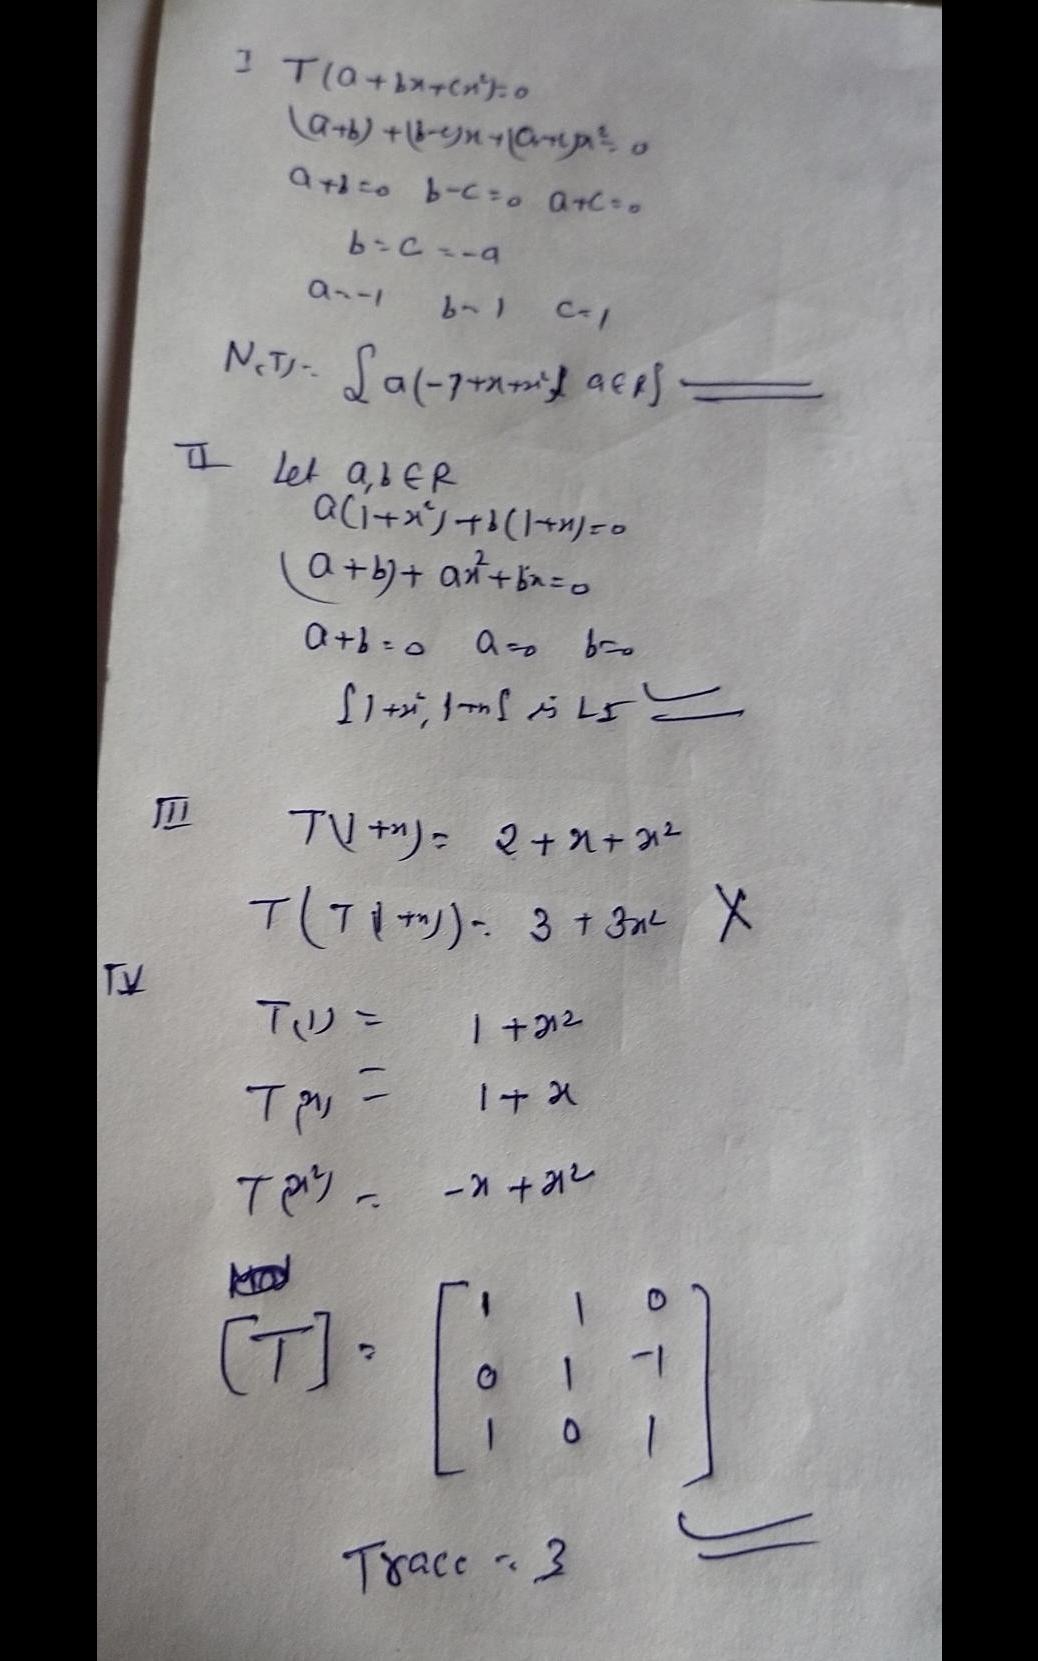 I T(a+bx+cx²)=0
(a+b)+(b-c)x+(a+c)x²=0
a+b=0 b-c=0 a+c=0
b=c=-a
a=-1 b=1 c=1
N(T)= {a(-1+x+x²) a∈R}
II Let a,b∈R
a(1+x²)+b(1+x)=0
(a+b)+ax²+bx=0
a+b=0 a=0 b=0
{1+x², 1+x} is LI
III T(1+x)= 2+x+x²
T(T(1+x))= 3+3x² X
IV
T(1) = 1+x²
T(x) = 1+x
T(x²) = -x+x²
[T] = [1 1 0
0 1 -1
1 0 1]
Trace = 3